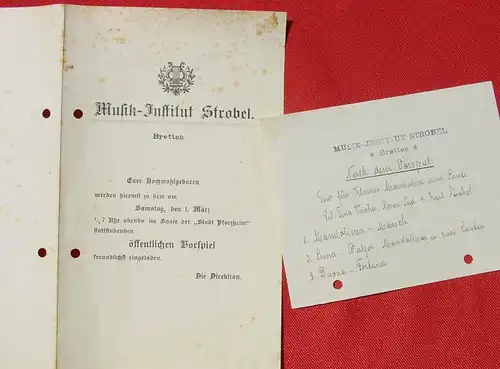 Musik-Institut Strobel.
Bretten
Euer Hochwohlgeboren
werden hiermit zu dem am
Samstag, den 1. März
½7 Uhr abends im Saale der „Stadt Pforzheim“
stattfindenden
öffentlichen Vorspiel
freundlichst eingeladen.
Die Direktion.
MUSIK-INSTITUT STROBEL
* Bretten *
Nach dem Vorspiel:
für Mandoline und Laute
Strobel
1. Mandolinen-Marsch
2. Luna-Walzer Mandolinen u. zwei Lauten
3. Buona-Fortuna